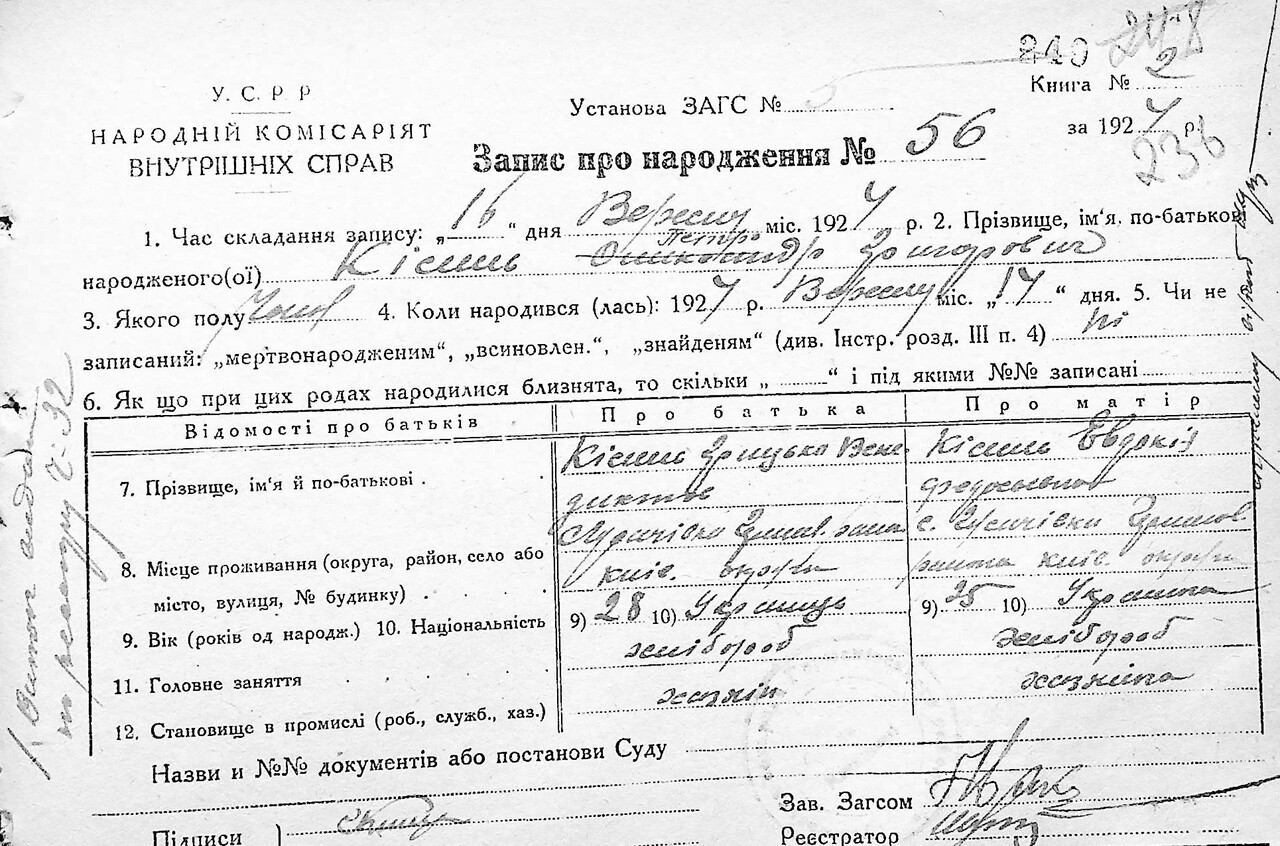 240
Книга № 2
У. С. Р. Р
Установа ЗАГС № 5
НАРОДНІЙ КОМІСАРІЯТ
за 1927 р.
ВНУТРІШНІХ СПРАВ
Запис про народження № 56
1. Час складання запису: „16“ дня Вересня міс. 1927 р. 2. Прізвище, ім'я, по-батькові
Петро
народженого(ої) Кісиль Григорович
3. Якого полу 4. Коли народився (лась): 1927 р. Вересня міс. „14“ дня. 5. Чи не
записаний: „мертвонародженим“, „всиновлен.“, „знайденям“ (див. Інстр. розд. III п. 4) ні
6. Як що при цих родах народилися близнята, то скільки „ “ і під якими №№ записані
Відомості про батьків Про батька Про матір
7. Прізвище, ім'я й по-батькові . Кісиль Грицько Вене Кісиль Евдокія
диктов Федосьевна
8. Місце проживання (округа, район, село або
київ. округи київ. округи
місто, вулиця, № будинку) . . .
9. Вік (років од народж.) 10. Національність 9) 28 10) Украінець 9) 25 10) Украінка
11. Головне заняття . . . . . хлібороб хлібороб
12. Становище в промислі (роб., служб., хаз.) хазяін хазяйка
Назви и №№ документів або постанови Суду
Зав. Загсом
Підписи
Реєстратор